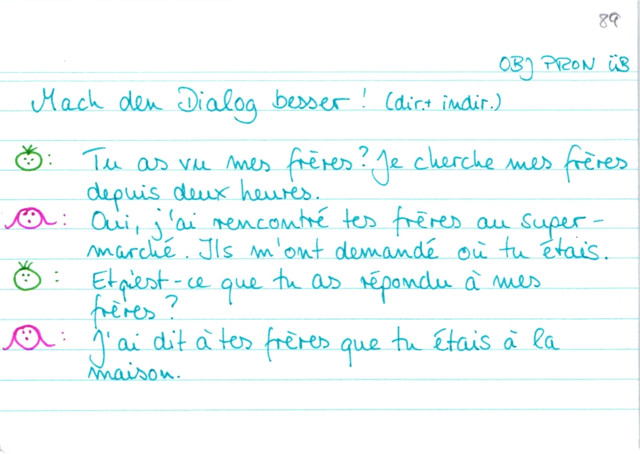 89
OBJ PRON ÜB
Mach den Dialog besser! (dir.+ indir.)
: Tu as vu mes frères? Je cherche mes frères
depuis deux heures.
: Oui, j'ai rencontré tes frères au super-
marché. Ils m'ont demandé où tu étais.
: Et qu'est-ce que tu as répondu à mes
frères?
: J'ai dit à tes frères que tu étais à la
maison.